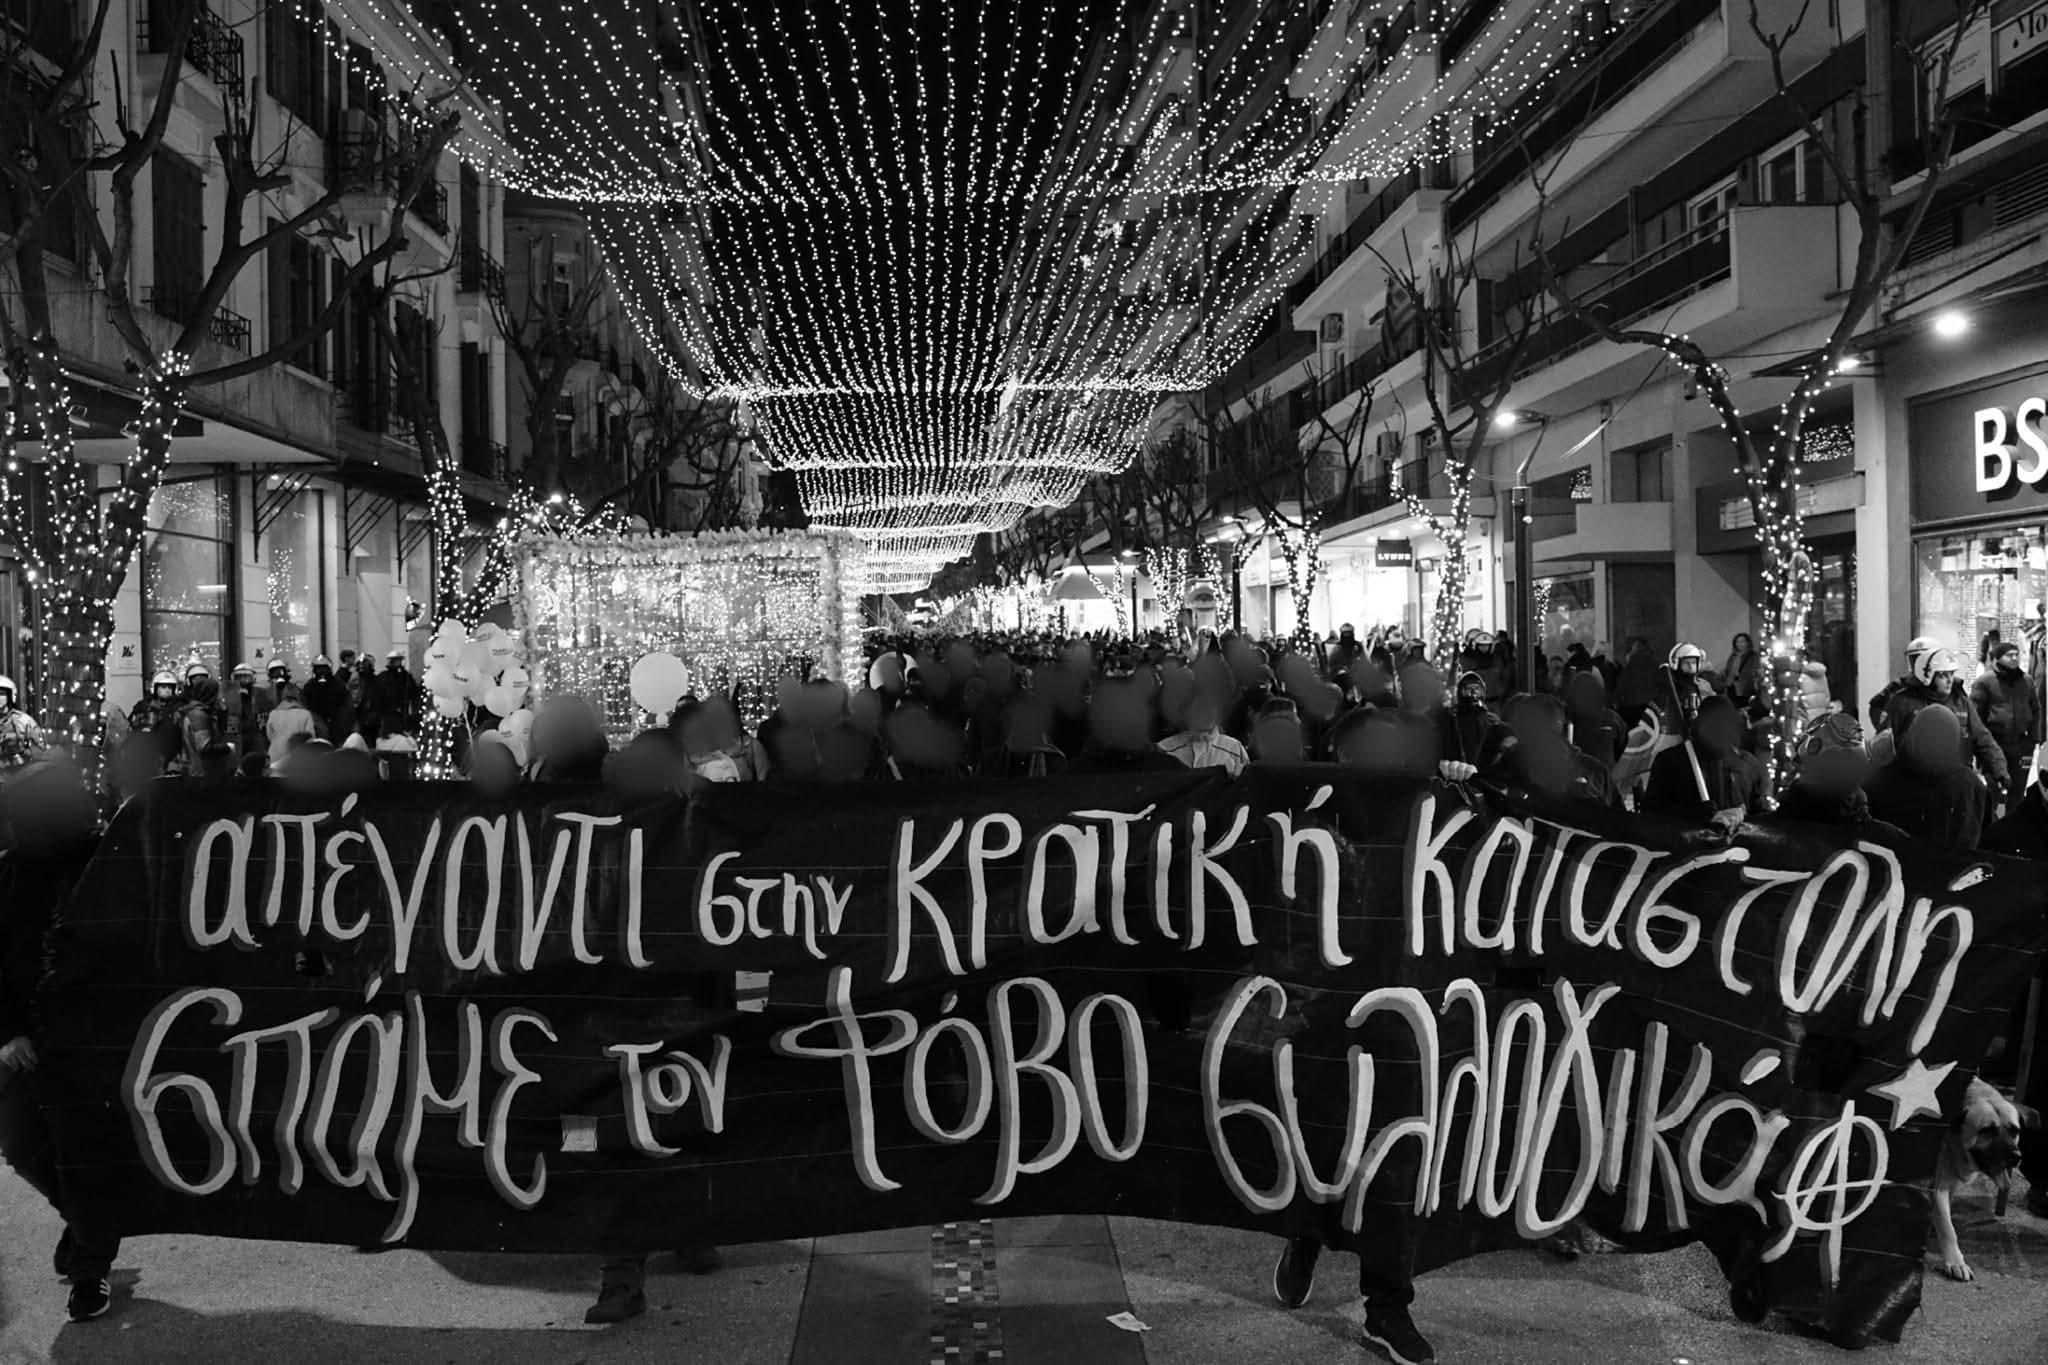 απέναντι στην κρατική καταστολή
σπάμε τον φόβο συλλογικά
BS
LYNNE